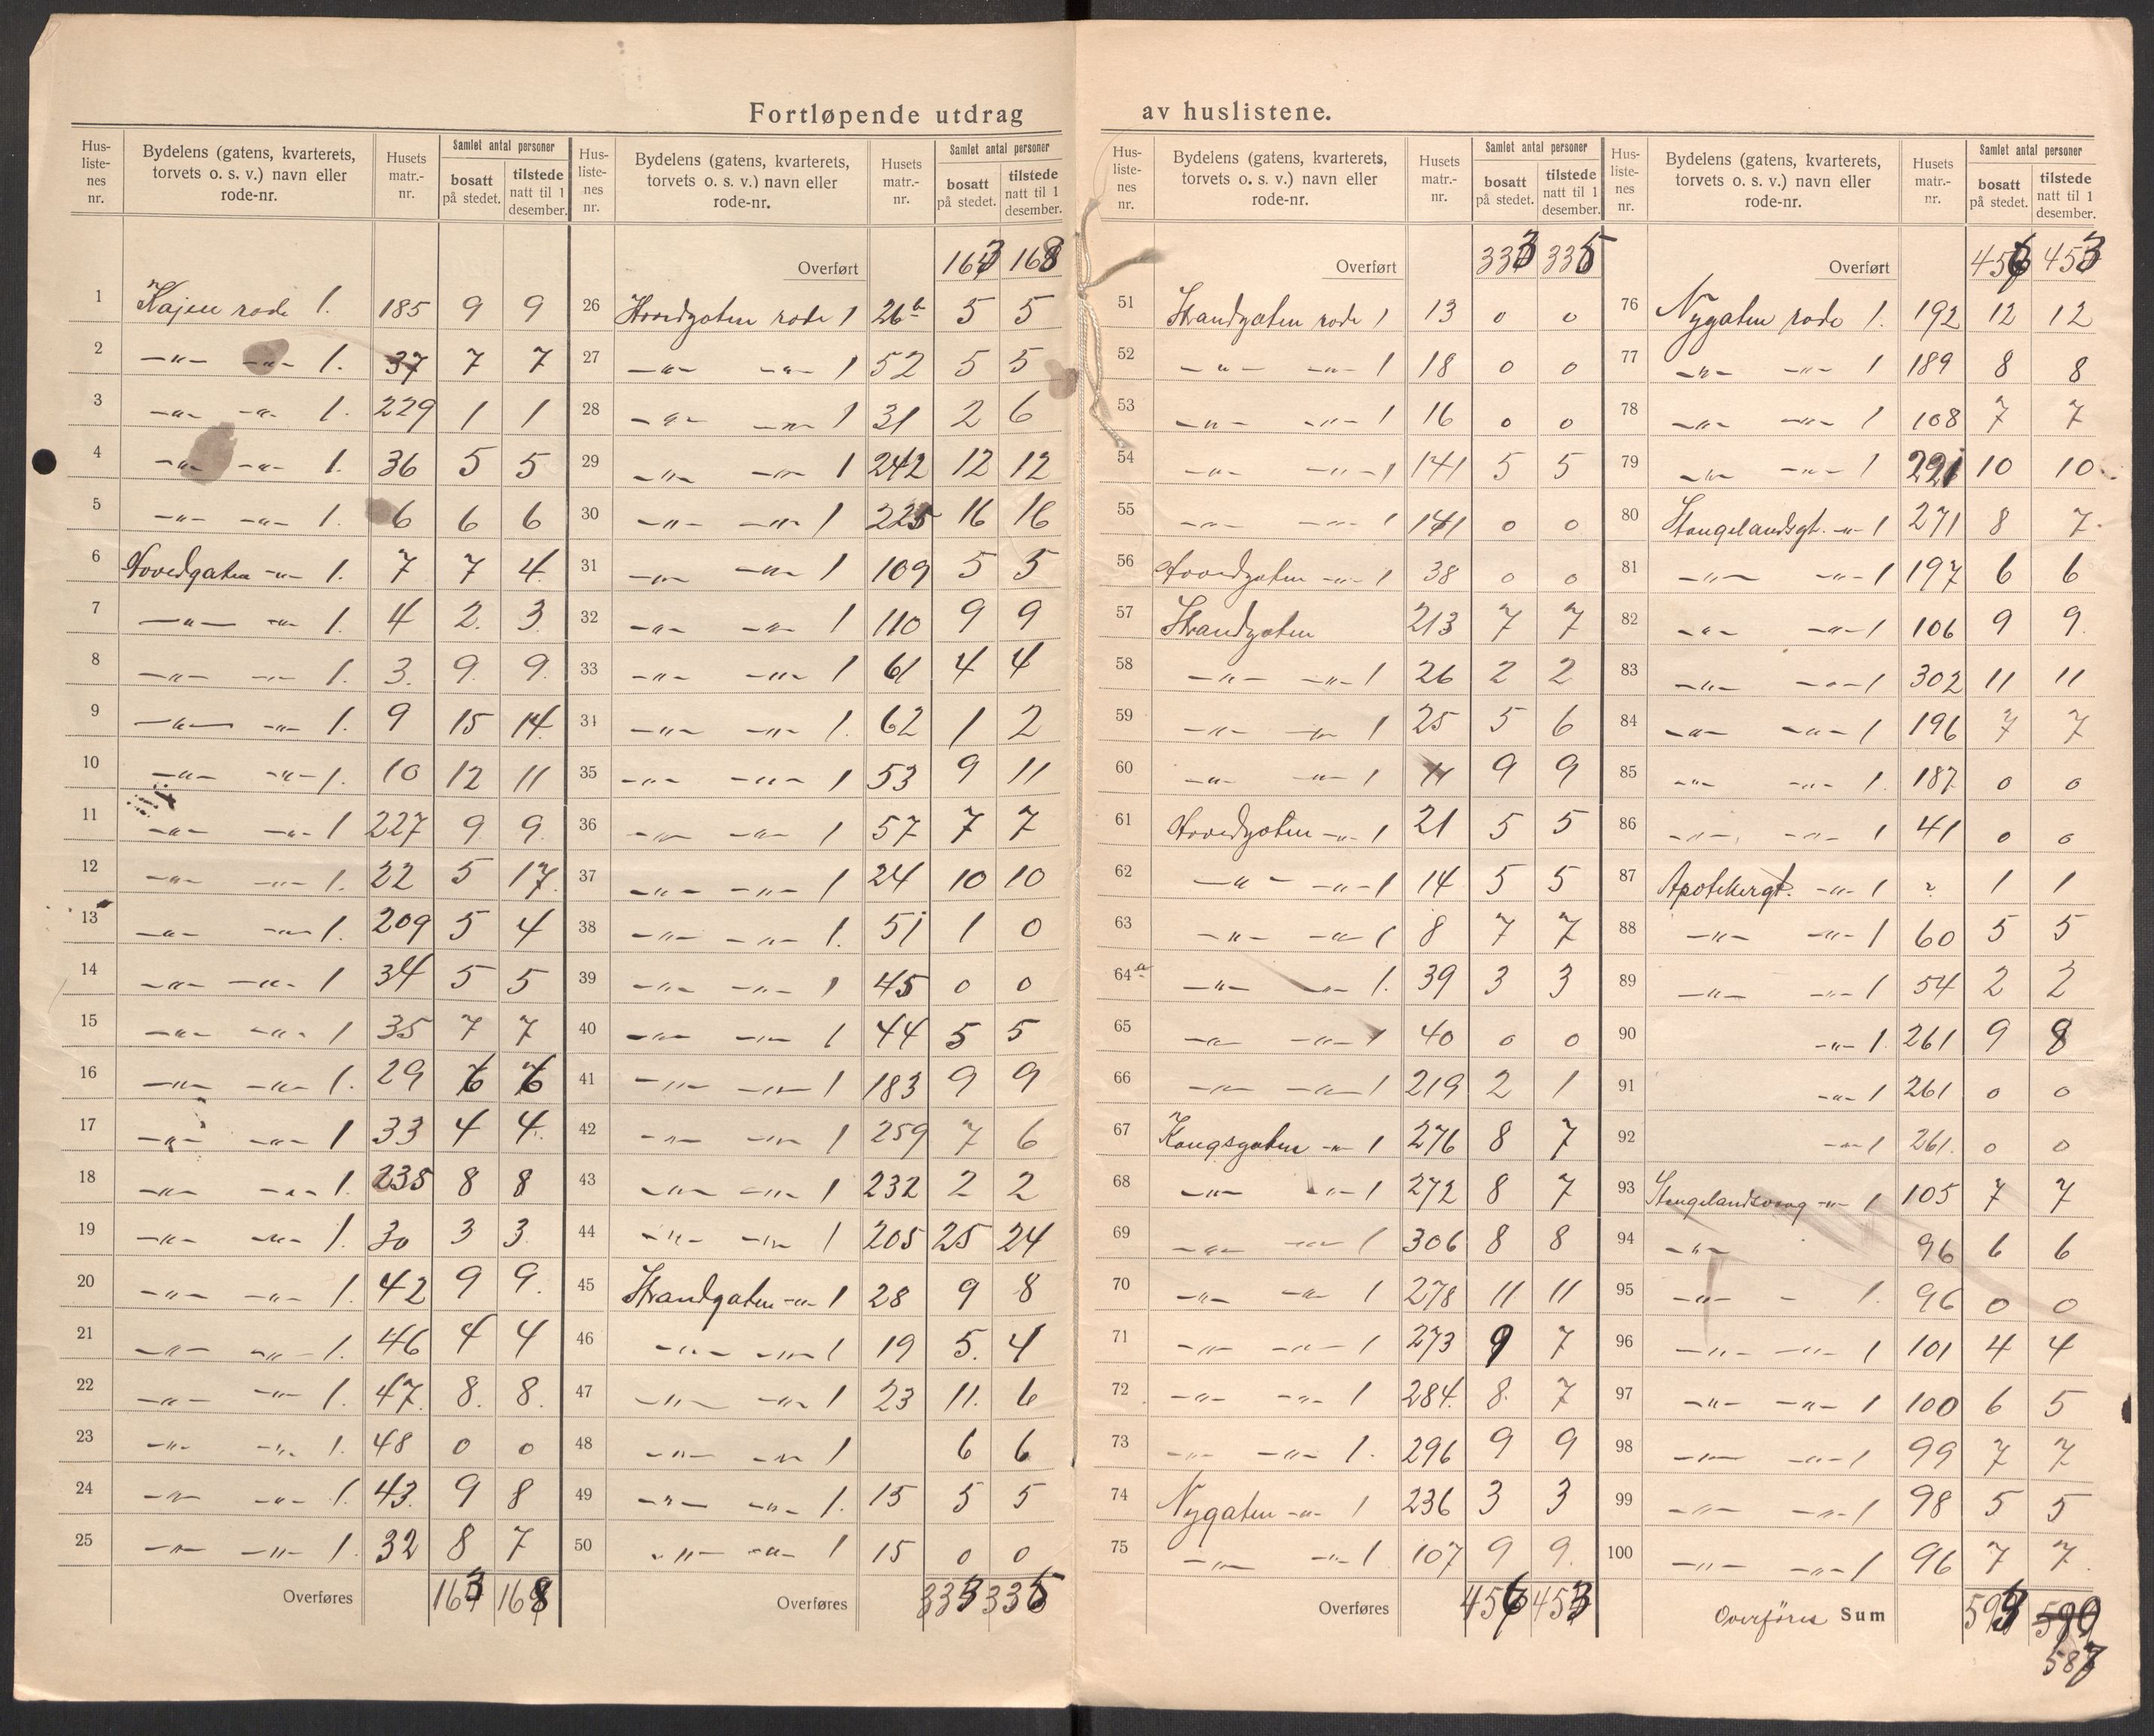 Fortløpende utdrag av huslistene.
Hus-liste-nes nr. | Bydelens (gatens, kvarterets, torvets o. s. v.) navn eller rode-nr. | Husets matr.-nr. | Samlet antal personer bosatt på stedet. | tilstede natt til 1 desember.
1 Kajen rode 1. 185 9 9
2 -"- -"- 1. 37 7 7
3 -"- -"- 1. 229 1 1
4 -"- -"- 1. 36 5 5
5 -"- -"- 1. 6 6 6
6 Hovedgaten -"- 1. 7 7 4
7 -"- -"- 1. 4 2 3
8 -"- -"- 1. 3 9 9
9 -"- -"- 1. 9 15 14
10 -"- -"- 1. 10 12 11
11 -"- -"- 1 227 9 9
12 -"- -"- 1. 22 5 17
13 -"- -"- 1. 209 5 4
14 -"- -"- 1 34 5 5
15 -"- -"- 1 35 7 7
16 -"- -"- 1. 29
17 -"- -"- 1 33 4 4
18 -"- -"- 1. 235 8 8
19 -"- -"- 1. 30 3 3
20 -"- -"- 1. 42 9 9
21 -"- -"- 1. 46 4 4
22 -"- -"- 1. 47 8 8
23 -"- -"- 1. 48 0 0
24 -"- -"- 1. 43 9 8
25 -"- -"- 1. 32 8 7
Overføres 163 168
Hus-liste-nes nr. | Bydelens (gatens, kvarterets, torvets o. s. v.) navn eller rode-nr. | Husets matr.-nr. | Samlet antal personer bosatt på stedet. | tilstede natt til 1 desember.
Overført 163 168
26 Hovedgaten rode 1 26b 5 5
27 -"- -"- 1 52 5 5
28 -"- -"- 1 31 2 6
29 -"- -"- 1 242 12 12
30 -"- -"- 1 225 16 16
31 -"- -"- 1 109 5 5
32 -"- -"- 1 110 9 9
33 -"- -"- 1 61 4 4
34 -"- -"- 1. 62 1 2
35 -"- -"- 1 53 9 11
36 -"- -"- 1 57 7 7
37 -"- -"- 1 24 10 10
38 -"- -"- 1. 51 1 0
39 -"- -"- 1 45 0 0
40 -"- -"- 1 44 5 5
41 -"- -"- 1 183 9 9
42 -"- -"- 1 259 7 6
43 -"- -"- 1 232 2 2
44 -"- -"- 1 205 25 24
45 Strandgaten -"- 1 28 9 8
46 -"- -"- 1 19 5. 4
47 -"- -"- 1 23 11. 6
48 -"- -"- 1 6 6
49 -"- -"- 1. 15 5 5
50 -"- -"- 1 15 0 0
Overføres 333 335
Hus-liste-nes nr. | Bydelens (gatens, kvarterets, torvets o. s. v.) navn eller rode-nr. | Husets matr.-nr. | Samlet antal personer bosatt på stedet. | tilstede natt til 1 desember.
Overført 333 335
51 Strandgaten rode 1 13 0 0
52 -"- -"- 1 18 0 0
53 -"- -"- 1 16 0 0
54 -"- -"- 1 141 5 5
55 -"- -"- 1 141 0 0
56 Hovedgaten -"- 1 38 0 0
57 Strandgaten 213 7 7
58 -"- -"- 1 26 2 2
59 -"- -"- 1 25 5 6
60 -"- -"- 1 9 9
61 Hovedgaten -"- 1 21 5 5
62 -"- -"- 1 14 5 5
63 -"- -"- 1 8 7 7
64a -"- -"- 1. 39 3 3
65 -"- -"- 1 40 0 0
66 -"- -"- 1 219 2 1
67 Kongsgaten -"- 1 276 8 7
68 -"- -"- 1 272 8 7
69 -"- -"- 1 306 8 8
70 -"- -"- 1 278 11 11
71 -"- -"- 1 273 9 7
72 -"- -"- 1 284. 8 7
73 -"- -"- 1. 296 9 9
74 Nygaten -"- 1 236 3 3
75 -"- -"- 1 107 9 9.
Overføres 456 453
Hus-liste-nes nr. | Bydelens (gatens, kvarterets, torvets o. s. v.) navn eller rode-nr. | Husets matr.-nr. | Samlet antal personer bosatt på stedet. | tilstede natt til 1 desember.
Overført 456 453
76 Nygaten rode 1. 192 12 12
77 -"- -"- 1 189 8 8
78 -"- -"- 1 108 7 7
79 -"- -"- 1 221 10 10
80 Stangelandsgt. -"- 1 271 8 7
81 -"- -"- 1 197 6 6
82 -"- -"- 1 106 9 9
83 -"- -"- 1 302 11 11
84 -"- -"- 1 196 7 7
85 -"- -"- 1. 187 0 0
86 -"- -"- 1 41 0 0
87 Apotekergt. -"- 1 ? 1 1
88 -"- -"- 1 60 5 5
89 -"- -"- 1 54 2 2
90 -"- 1. 261 9 8
91 -"- 1 261 0 0
92 -"- 1 261. 0 0
93 Stangelandsvaag -"- 1 105 7 7
94 -"- 96 6 6
95 -"- - 1. 96 0 0
96 -"- -"- 1 101 4 4
97 -"- -"- 1 100 6 5
98 -"- -"- 1 99 7 7
99 -"- -"- 1 98 5 5
100 -"- -"- 1 96 7 7.
Overføres Sum 593 590
587